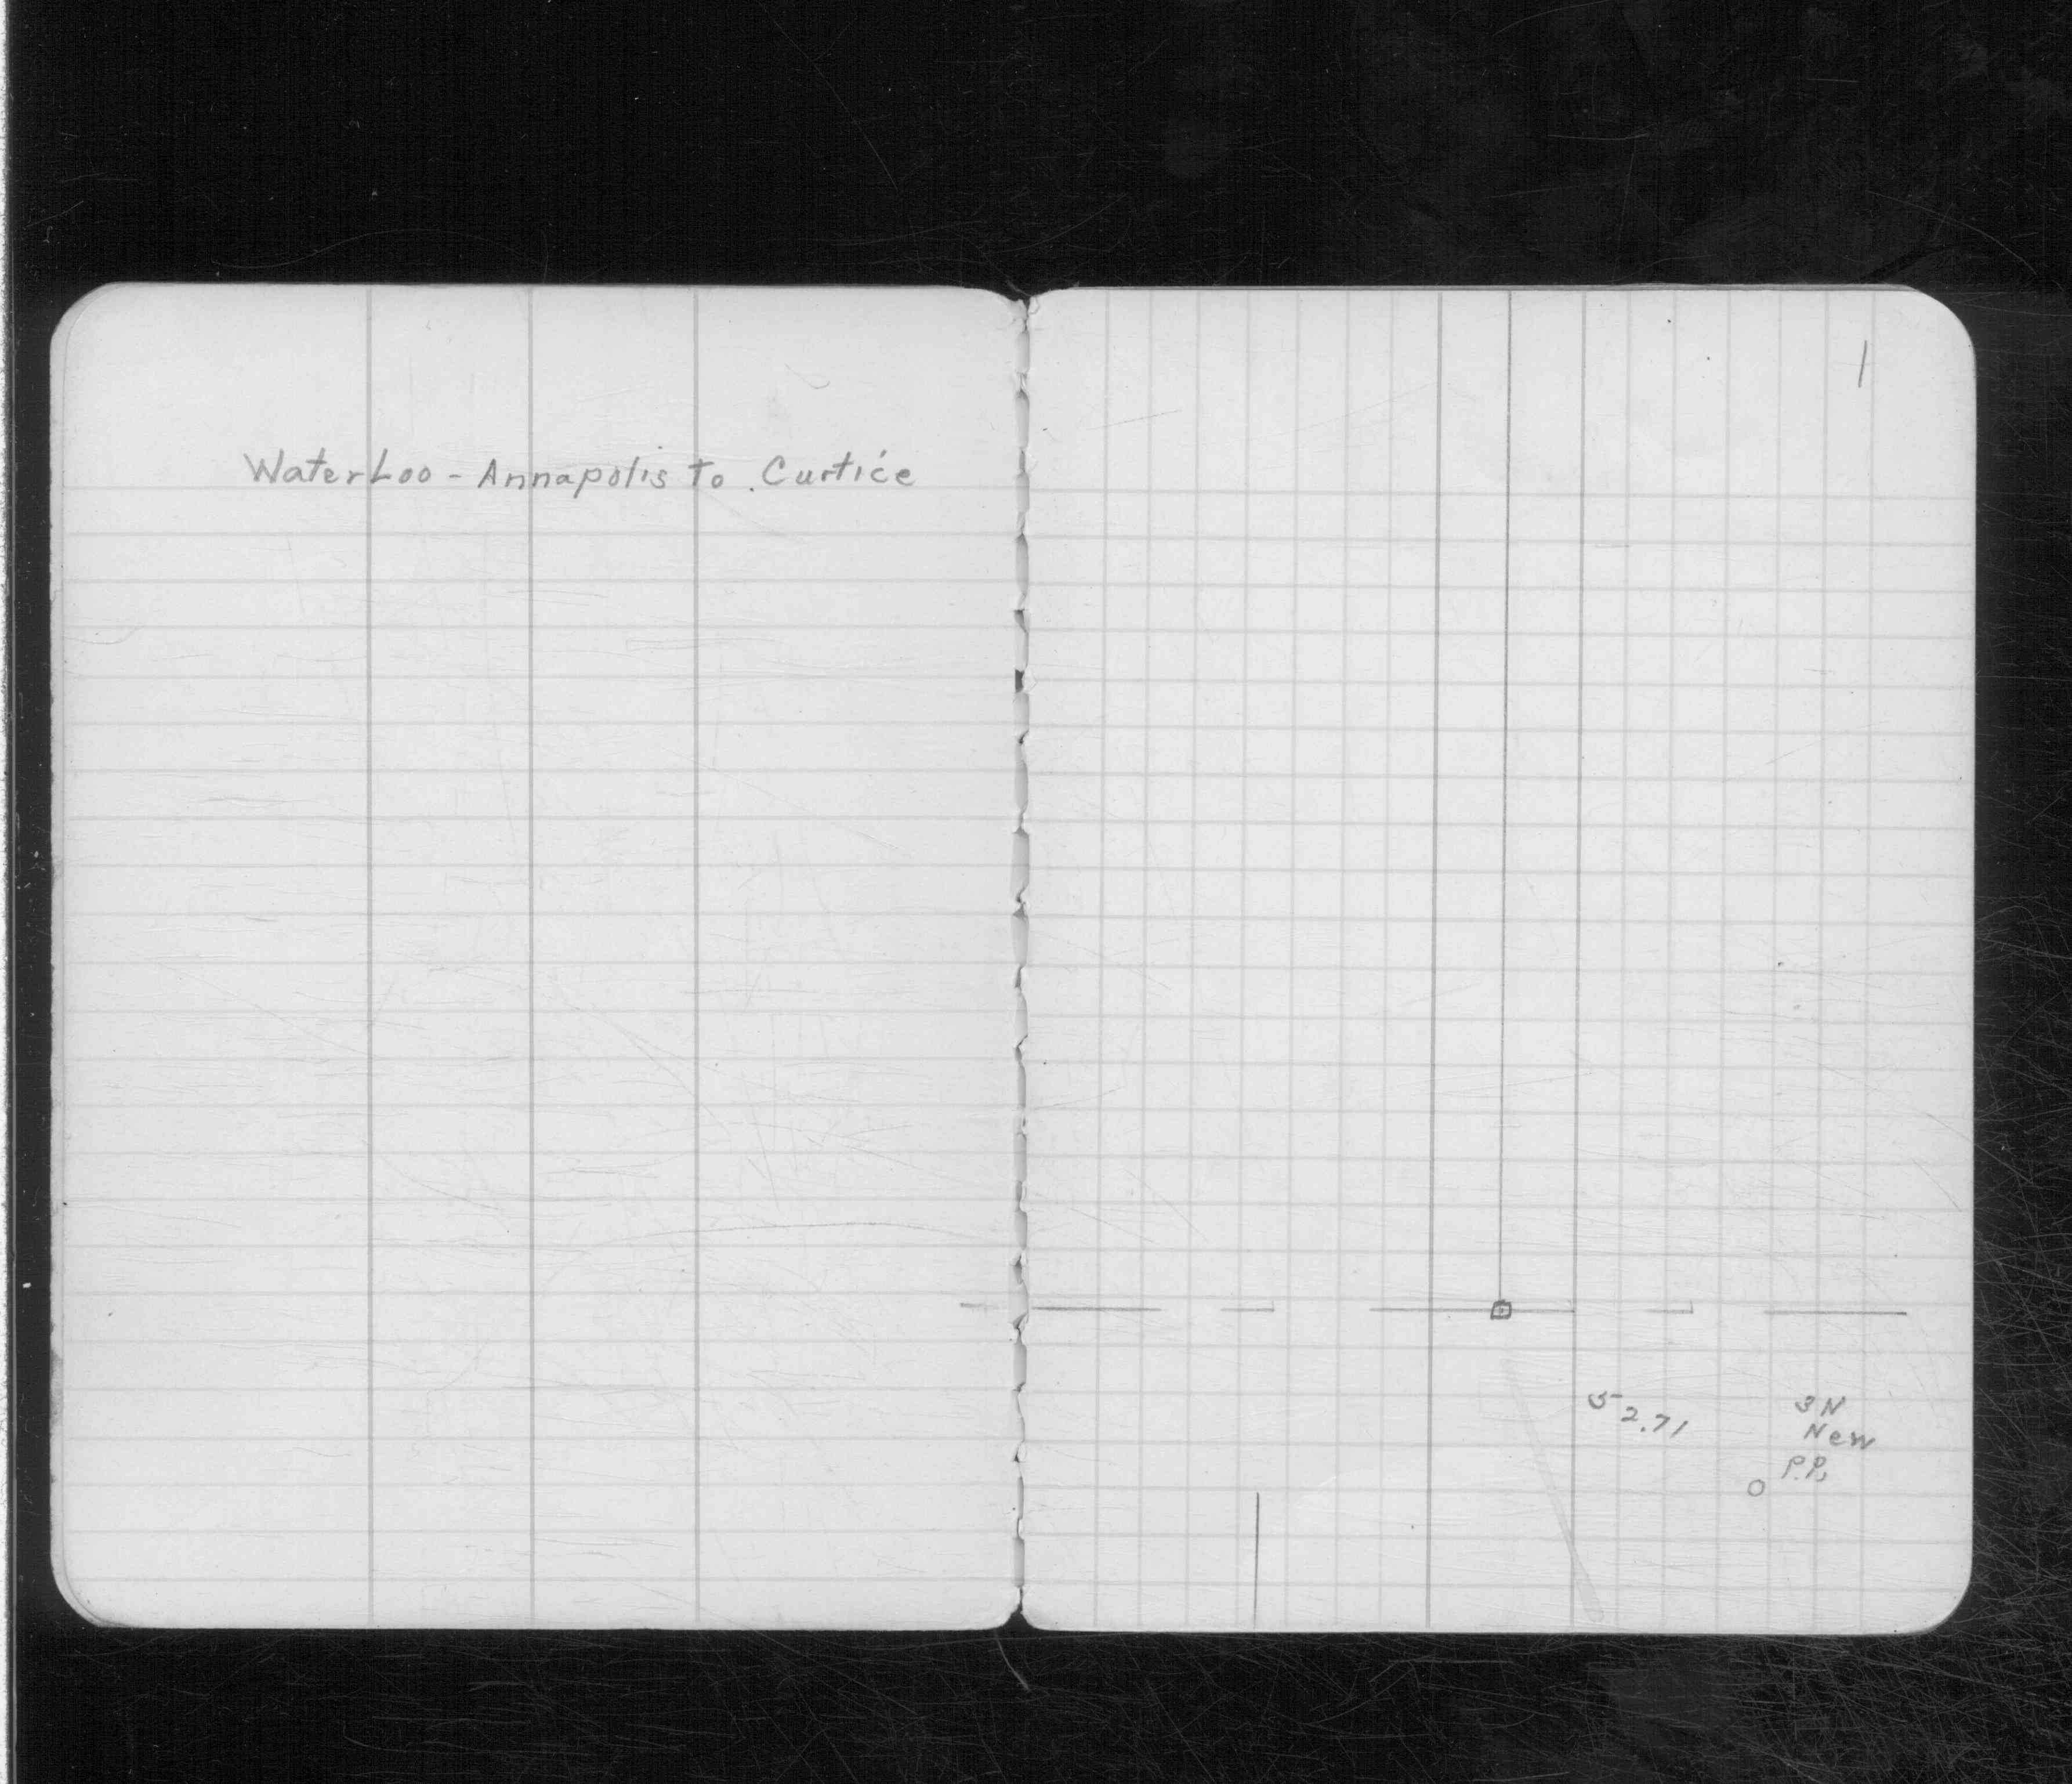 WaterLoo - Annapolis to Curtice
1
52.71
3N
New
P.P.